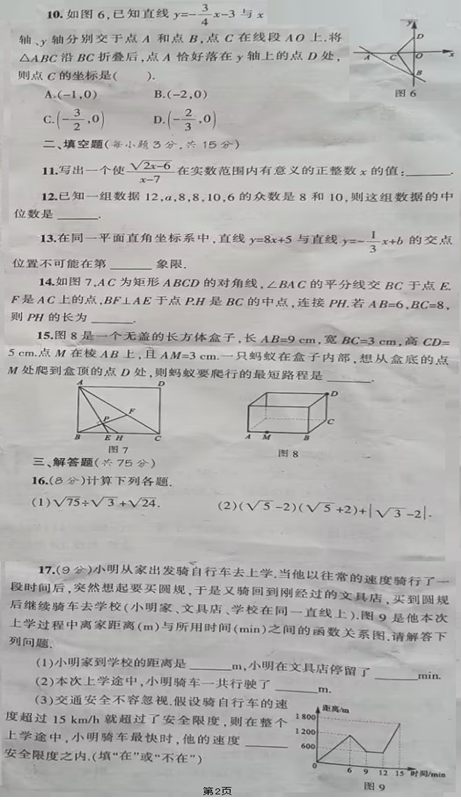 10.如图6,已知直线 y=-3/4x-3与x
轴、y轴分别交于点A和点B,点C在线段AO上.将
△ABC沿BC折叠后,点A恰好落在y轴上的点D处,
则点C的坐标是( ).
A.(-1,0) B.(-2,0)
C.(-3/2,0) D.(-2/3,0)
y
D
A C O x
B
图6
二、填空题(每小题3分,共15分)
11.写出一个使√(2x-6)/(x-7)在实数范围内有意义的正整数x的值:______.
12.已知一组数据12,a,8,8,10,6的众数是8和10,则这组数据的中
位数是______.
13.在同一平面直角坐标系中,直线y=8x+5与直线y=-1/3x+b的交点
位置不可能在第______象限.
14.如图7,AC为矩形ABCD的对角线,∠BAC的平分线交BC于点E.
F是AC上的点,BF⊥AE于点P.H是BC的中点,连接PH.若AB=6,BC=8,
则PH的长为______.
15.图8是一个无盖的长方体盒子,长AB=9 cm,宽BC=3 cm,高CD=
5 cm.点M在棱AB上,且AM=3 cm.一只蚂蚁在盒子内部,想从盒底的点
M处爬到盒顶的点D处,则蚂蚁要爬行的最短路程是______.
A D
F
P
B E H C
图7
D
C
A M B
图8
三、解答题(共75分)
16.(8分)计算下列各题.
(1)√75÷√3+√24. (2)(√5-2)(√5+2)+|√3-2|.
17.(9分)小明从家出发骑自行车去上学.当他以往常的速度骑行了一
段时间后,突然想起要买圆规,于是又骑回到刚经过的文具店,买到圆规
后继续骑车去学校(小明家、文具店、学校在同一直线上).图9是他本次
上学过程中离家距离(m)与所用时间(min)之间的函数关系图.请解答下
列问题.
(1)小明家到学校的距离是______m,小明在文具店停留了______min.
(2)本次上学途中,小明骑车一共行驶了______m.
(3)交通安全不容忽视.假设骑自行车的速
度超过15 km/h就超过了安全限度,则在整个
上学途中,小明骑车最快时,他的速度______
安全限度之内.(填“在”或“不在”)
距离/m
1 800
1 200
600
O 6 9 12 15 时间/min
图9
第2页